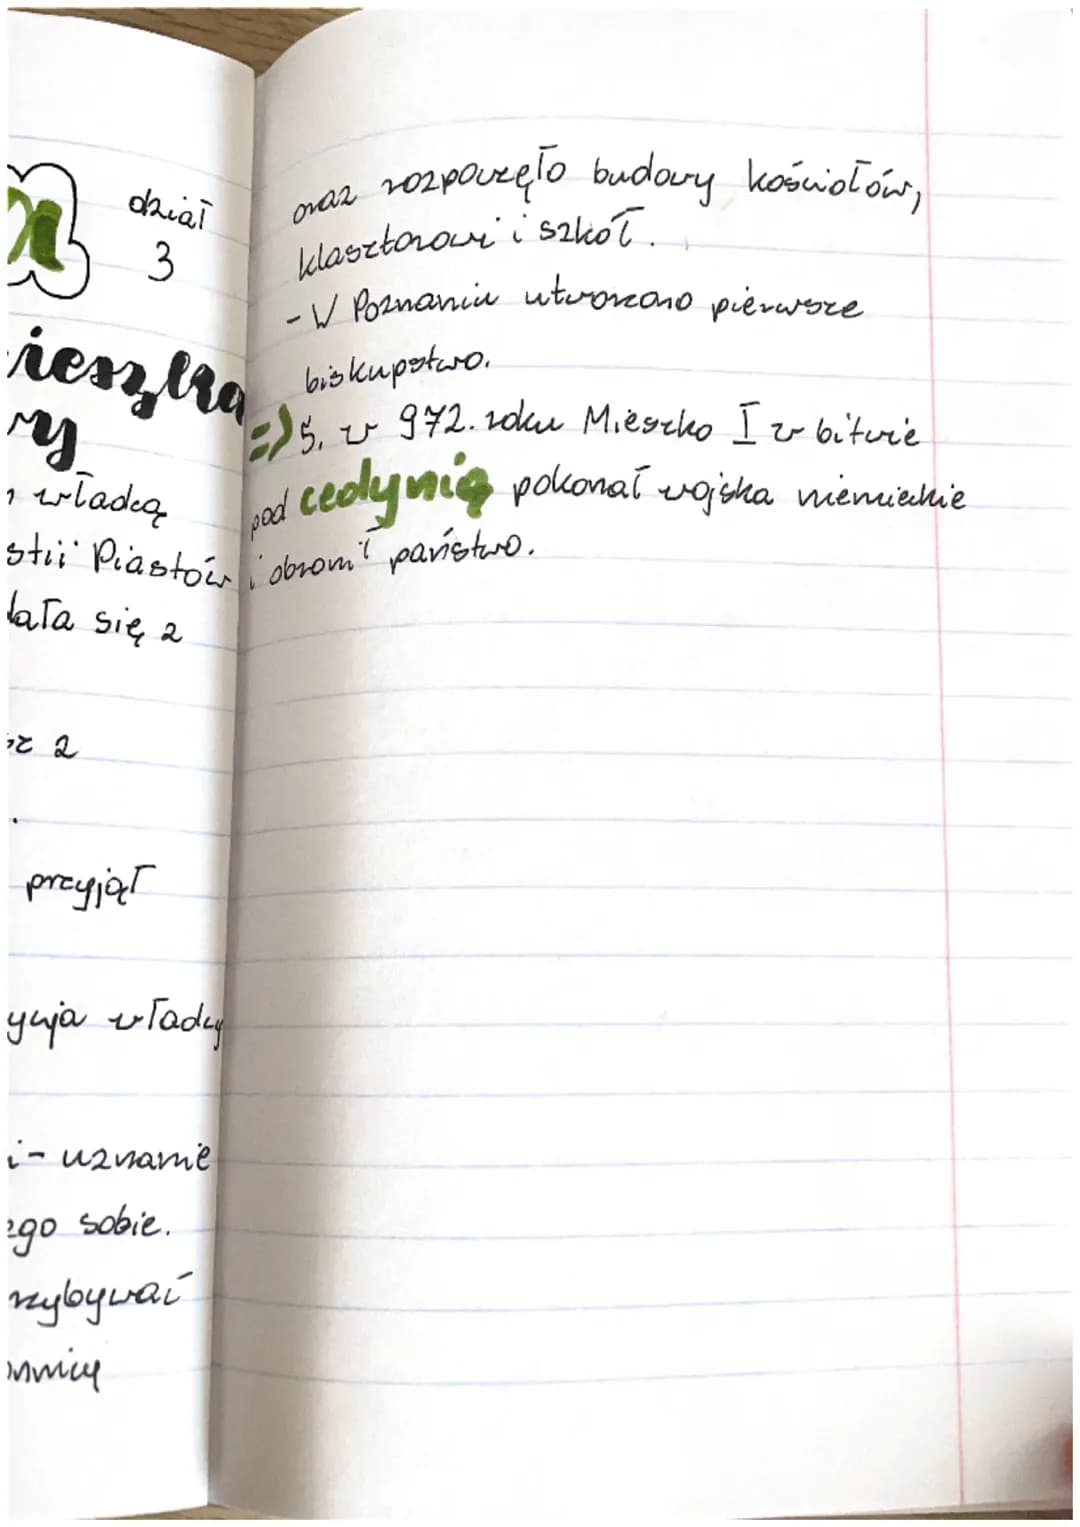 dział
3
ieszka
ry
władcą
stii Piastów
dała się z
sz 2
przyjął
ycja władcy
i - uznanie
ego sobie.
rzybywać
onnicy
oraz rozpoczęło budowy kościołów,
klasztorow i szkół.
- W Poznaniu utworzono pierwsze
biskupstwo.
=> 5. w 972. roku Mieszko I w bitwie
pod cedynią pokonał wojska niemieckie
i obronił państwo.